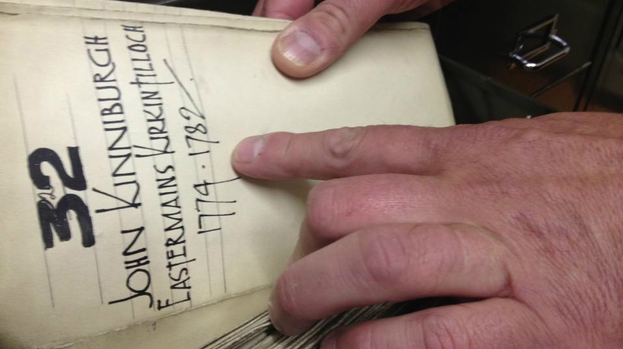 32
JOHN KINNIBURGH
EASTERMAINS KIRKINTILLOCH
1774 · 1782